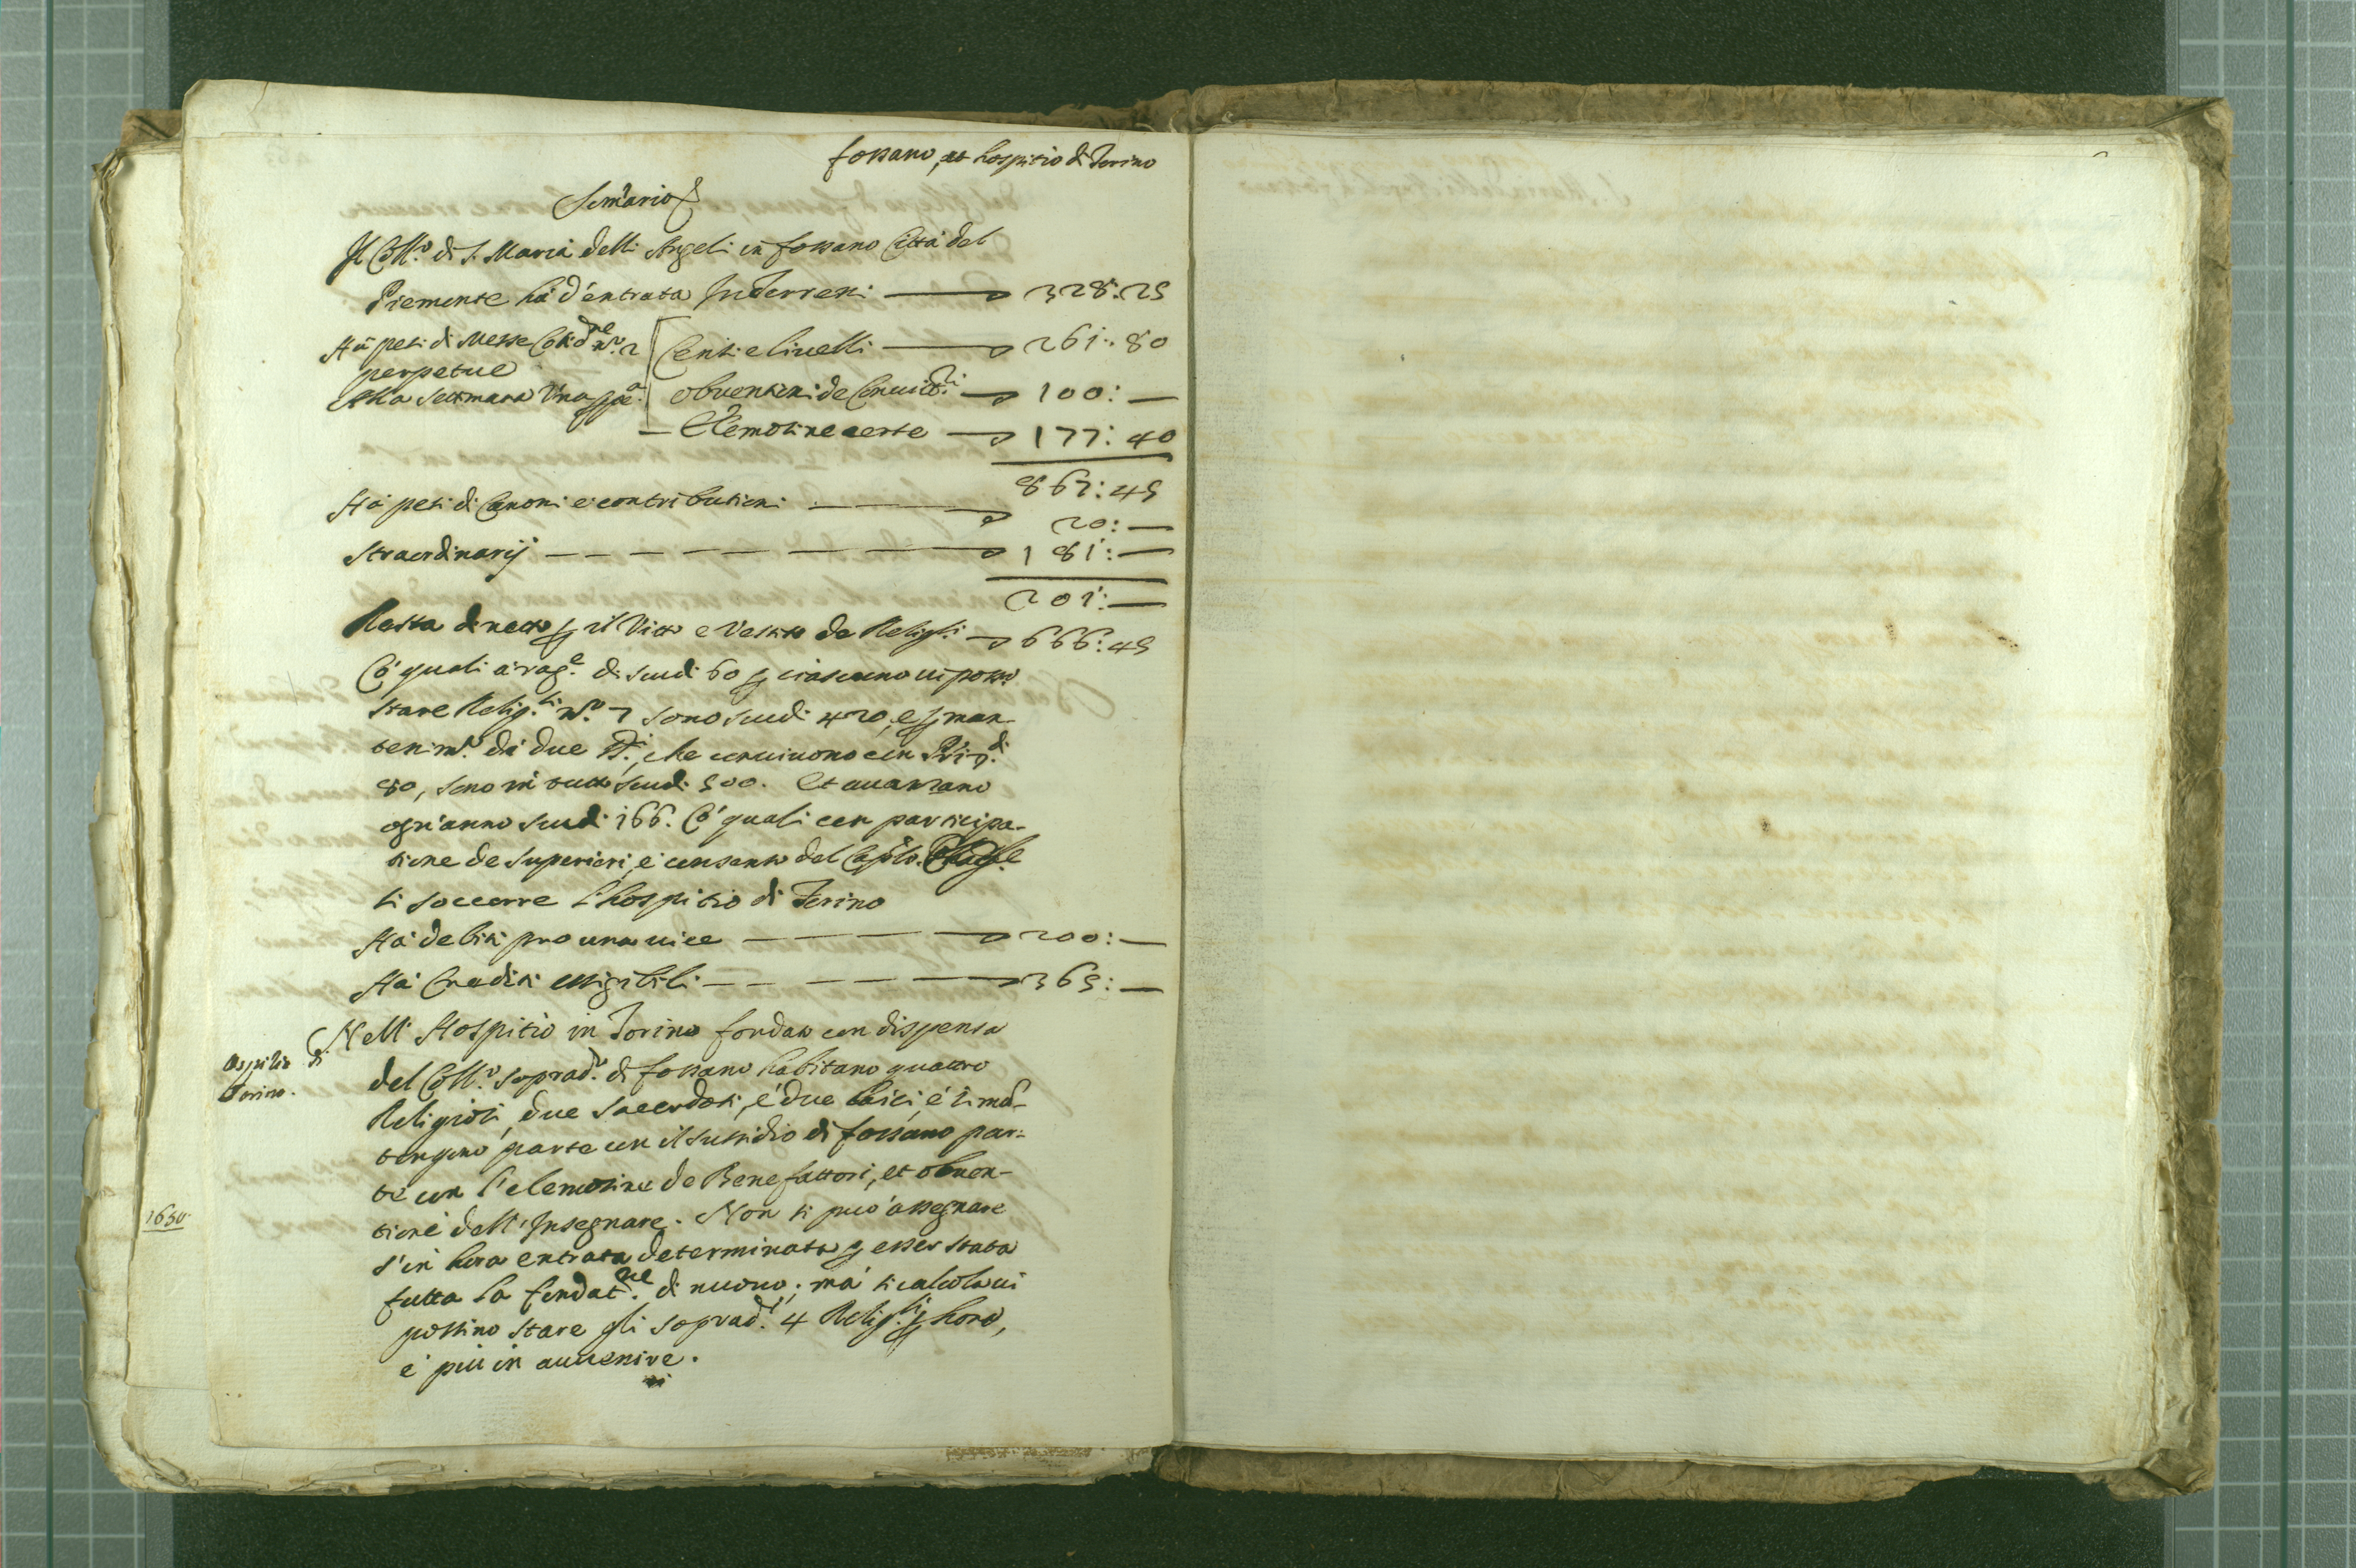 fossano, et hospitio di Torino
Som̃ario
Il Coll.º di S. Maria delli Angeli in fossano Città del
Piemonte hà d'entrata In Terreni — 328:25
Hà pesi di Messe Cotid.ne n.º 2
perpetue
Alla settimana Una
Censi e liuelli — 261:80
obuentioni de Conuitt.ri — 100:—
Elemosine certe — 177:40
867:45
Hà pesi di Canoni e contributioni — 20:—
Straordinarij — 181:—
201:—
Resta di netto p il Vitto e Vestito de Relig.si — 666:45
Cō quali à rag.e di scudi 60 p ciascuno ui posso
stare Relig.si n.º 7 sono scudi 420, e p man
tenim.to di due che conuiuono con
80, sono in tutto scudi 500. Et auanzano
ogn'anno scudi 166. Cō quali con participa-
tione de superiori, e consenso del Capĩlo
si soccorre l'hospitio di Torino
Hà debiti pro una uice — 200:—
Hà Crediti essigibili — 365:—
ospitio di
Torino.
Nell' Hospitio in Torino fondato con dispensa
del Coll.º soprad.º di fossano habitano quattro
Religiosi, due sacerdoti, è due laici, è si mã-
tengono parte con il sussidio di fossano par-
te con l'elemosine de Benefattori, et obuen-
tione dell'Insegnare. Non si può assegnare
1650
s'in hora entrata determinata p esser stata
fatta la fondat.ne di nuouo; mà si calcola ui
possino stare gli soprad.i 4 Relig.si p hora,
è più in auuenire.